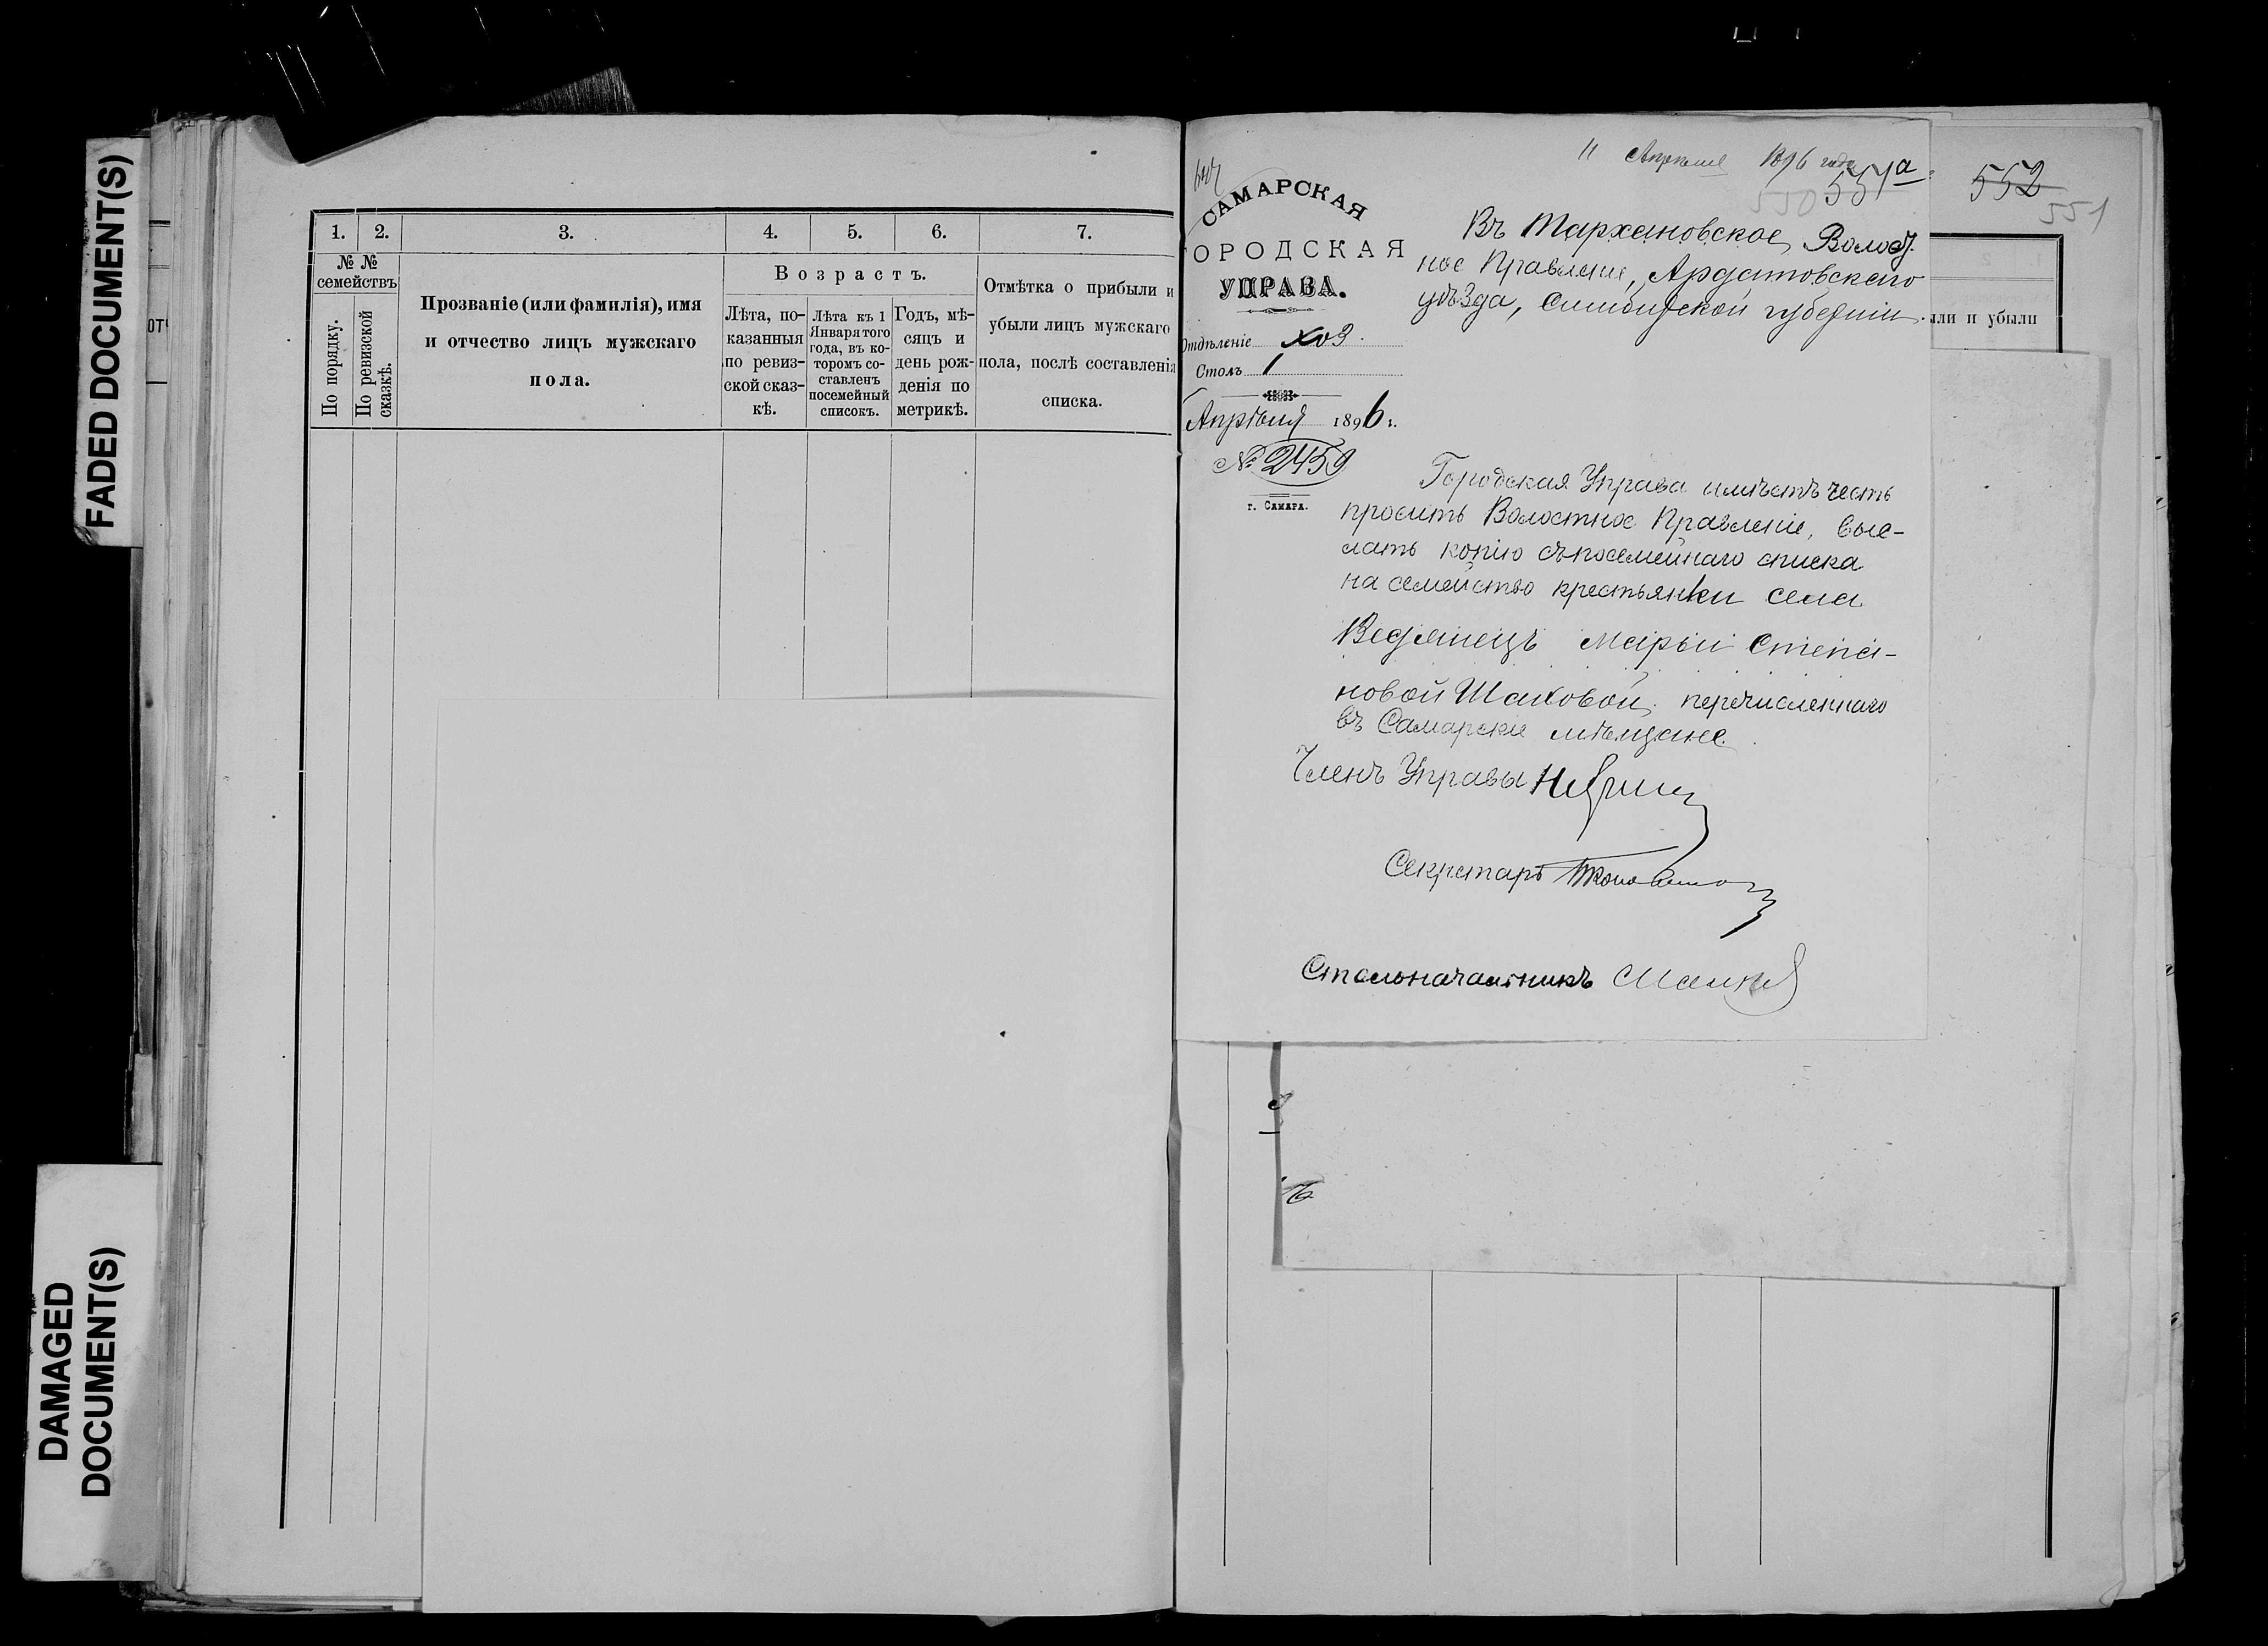 FADED DOCUMENT(S)
DAMAGED DOCUMENT(S)
1. 2. 3. 4. 5. 6. 7.
№ №
семействъ
По порядку.
По ревизской сказкѣ.
Прозваніе (или фамилія), имя
и отчество лицъ мужскаго
пола.
Возрастъ.
Лѣта, по-
казанныя
по ревиз-
ской сказ-
кѣ.
Лѣта къ 1
Января того
года, въ ко-
торомъ со-
ставленъ
посемейный
списокъ.
Годъ, мѣ-
сяцъ и
день рож-
денія по
метрикѣ.
Отмѣтка о прибыли и
убыли лицъ мужскаго
пола, послѣ составленія
списка.
11 Апрѣля 1896 года
551а
550
552
551
САМАРСКАЯ
ОРОДСКАЯ
УПРАВА.
Отдѣленіе Хоз.
Столъ 1
Апрѣля 1896 г.
№ 2459
г. Самара.
Въ Тархановское Волост.
ное Правленіе, Ардатовскаго
уѣзда, Симбирской губерніи.
ыли и убыли
Городская Управа имѣетъ честь
просить Волостное Правленіе, выс-
лать копію съ посемейнаго списка
на семейство крестьянки села
Ведянецъ Марьи Степа-
новой Шаховой, перечисленнаго
въ Самарскіе мѣщане.
Членъ Управы
Секретарь
Столоначальникъ